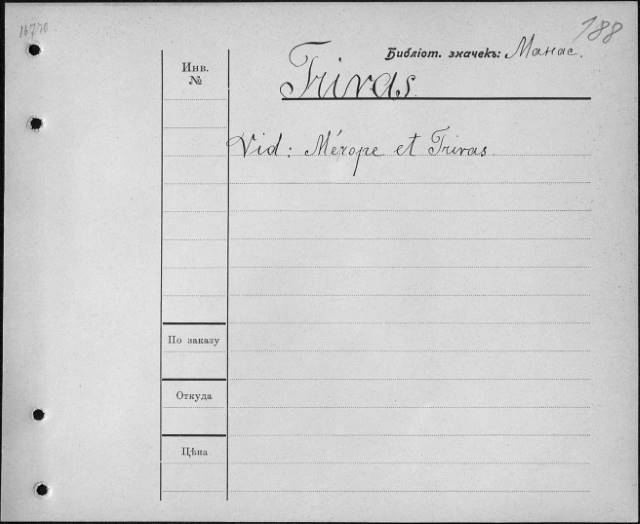 188
Библіот. значекъ: Манас.
Инв.
№
Trivas.
Vid: Mérope et Trivas.
По заказу
Откуда
Цѣна